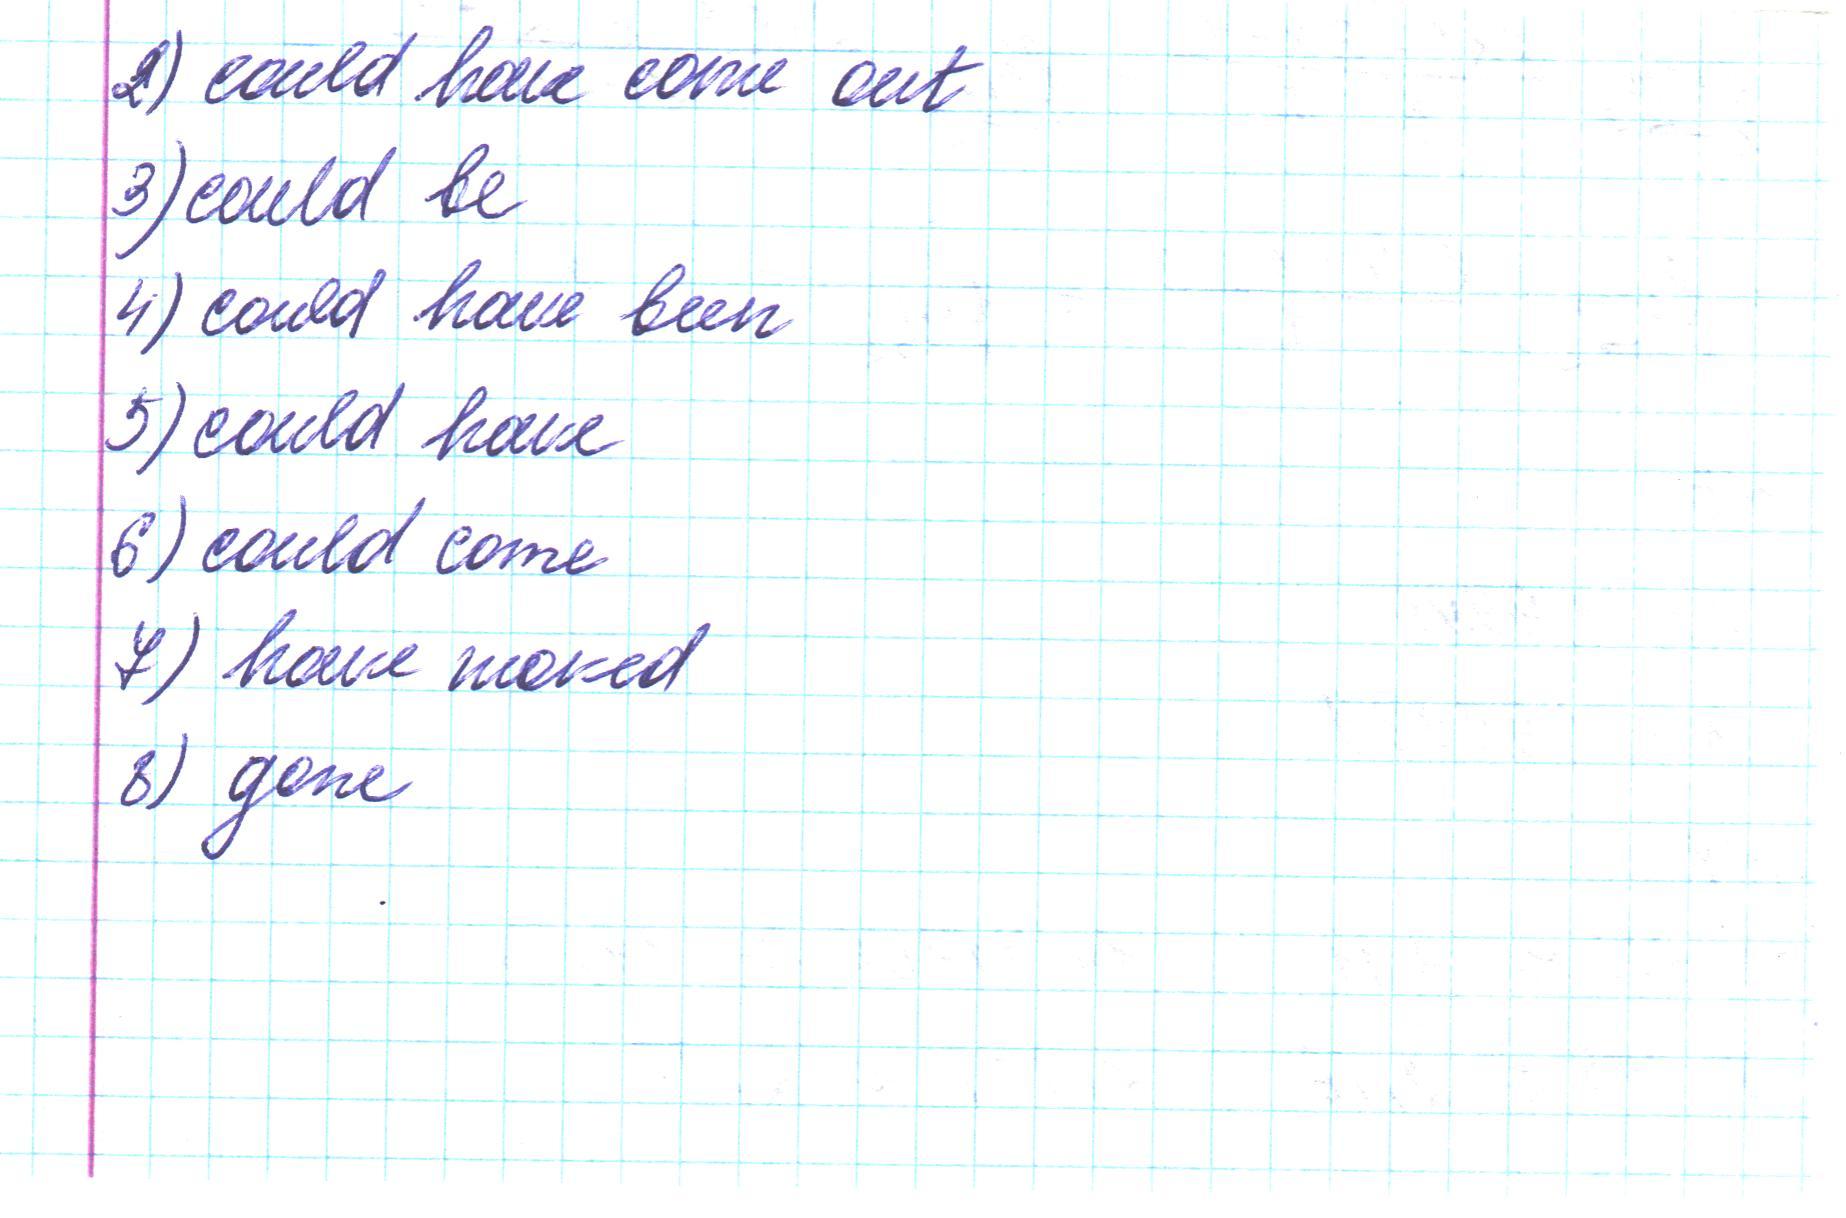 2) could have come out
3) could be
4) could have been
5) could have
6) could come
7) have moved
8) gone